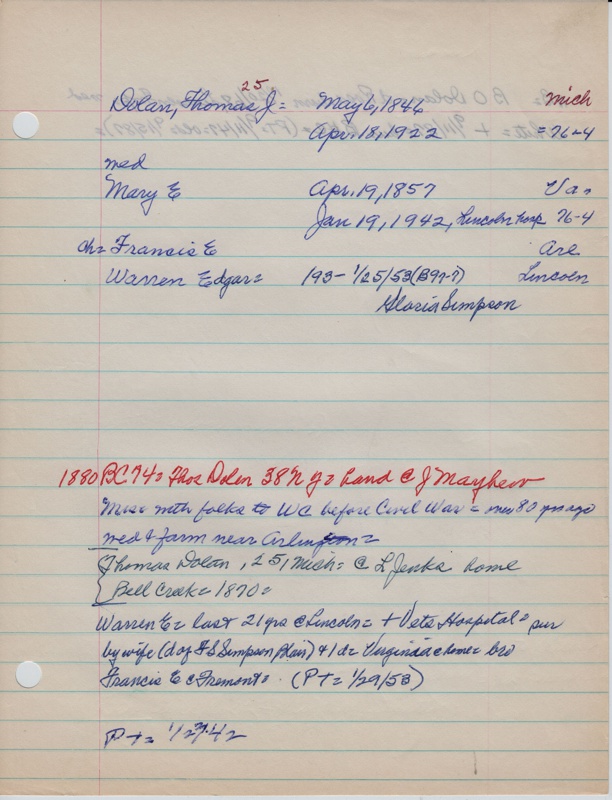 25
Dolan, Thomas J = May 6, 1846 Mich
Apr. 18, 1922 = 76-4
wed
Mary E Apr. 19, 1857 Va.
Jan 19, 1942, Lincoln hosp 76-4
ch = Francis E Are
Warren Edgar = 193- 1/25/53 (B97-7) Lincoln
Gloria Simpson
1880 BC 74 = Thos Dolen 38 N Y = hand @ J Mayhew
with folks to WC before Civil War = over 80 yrs ago
wed & farm near Arlington =
Thomas Dolan, 25, Mich = @ L Jenks home
Bell Creek = 1870 =
Warren E = last 21 yrs @ Lincoln = + Vets Hospital = sur
by wife (d of F S Simpson Blair) & 1 d = Virginia @ home = bro
Francis E @ Fremont = (P T = 1/29/53)
P T = 1/27/42